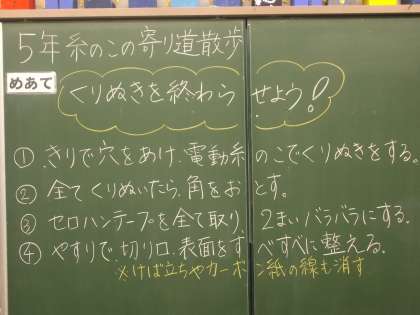 5年糸のこの寄り道散歩
めあて
くりぬきを終わらせよう!
① きりで穴をあけ、電動糸のこでくりぬきをする。
② 全てくりぬいたら、角をおとす。
③ セロハンテープを全て取り、2まいバラバラにする。
④ やすりで、切り口、表面をすべすべに整える。
※けば立ちやカーボン紙の線も消す